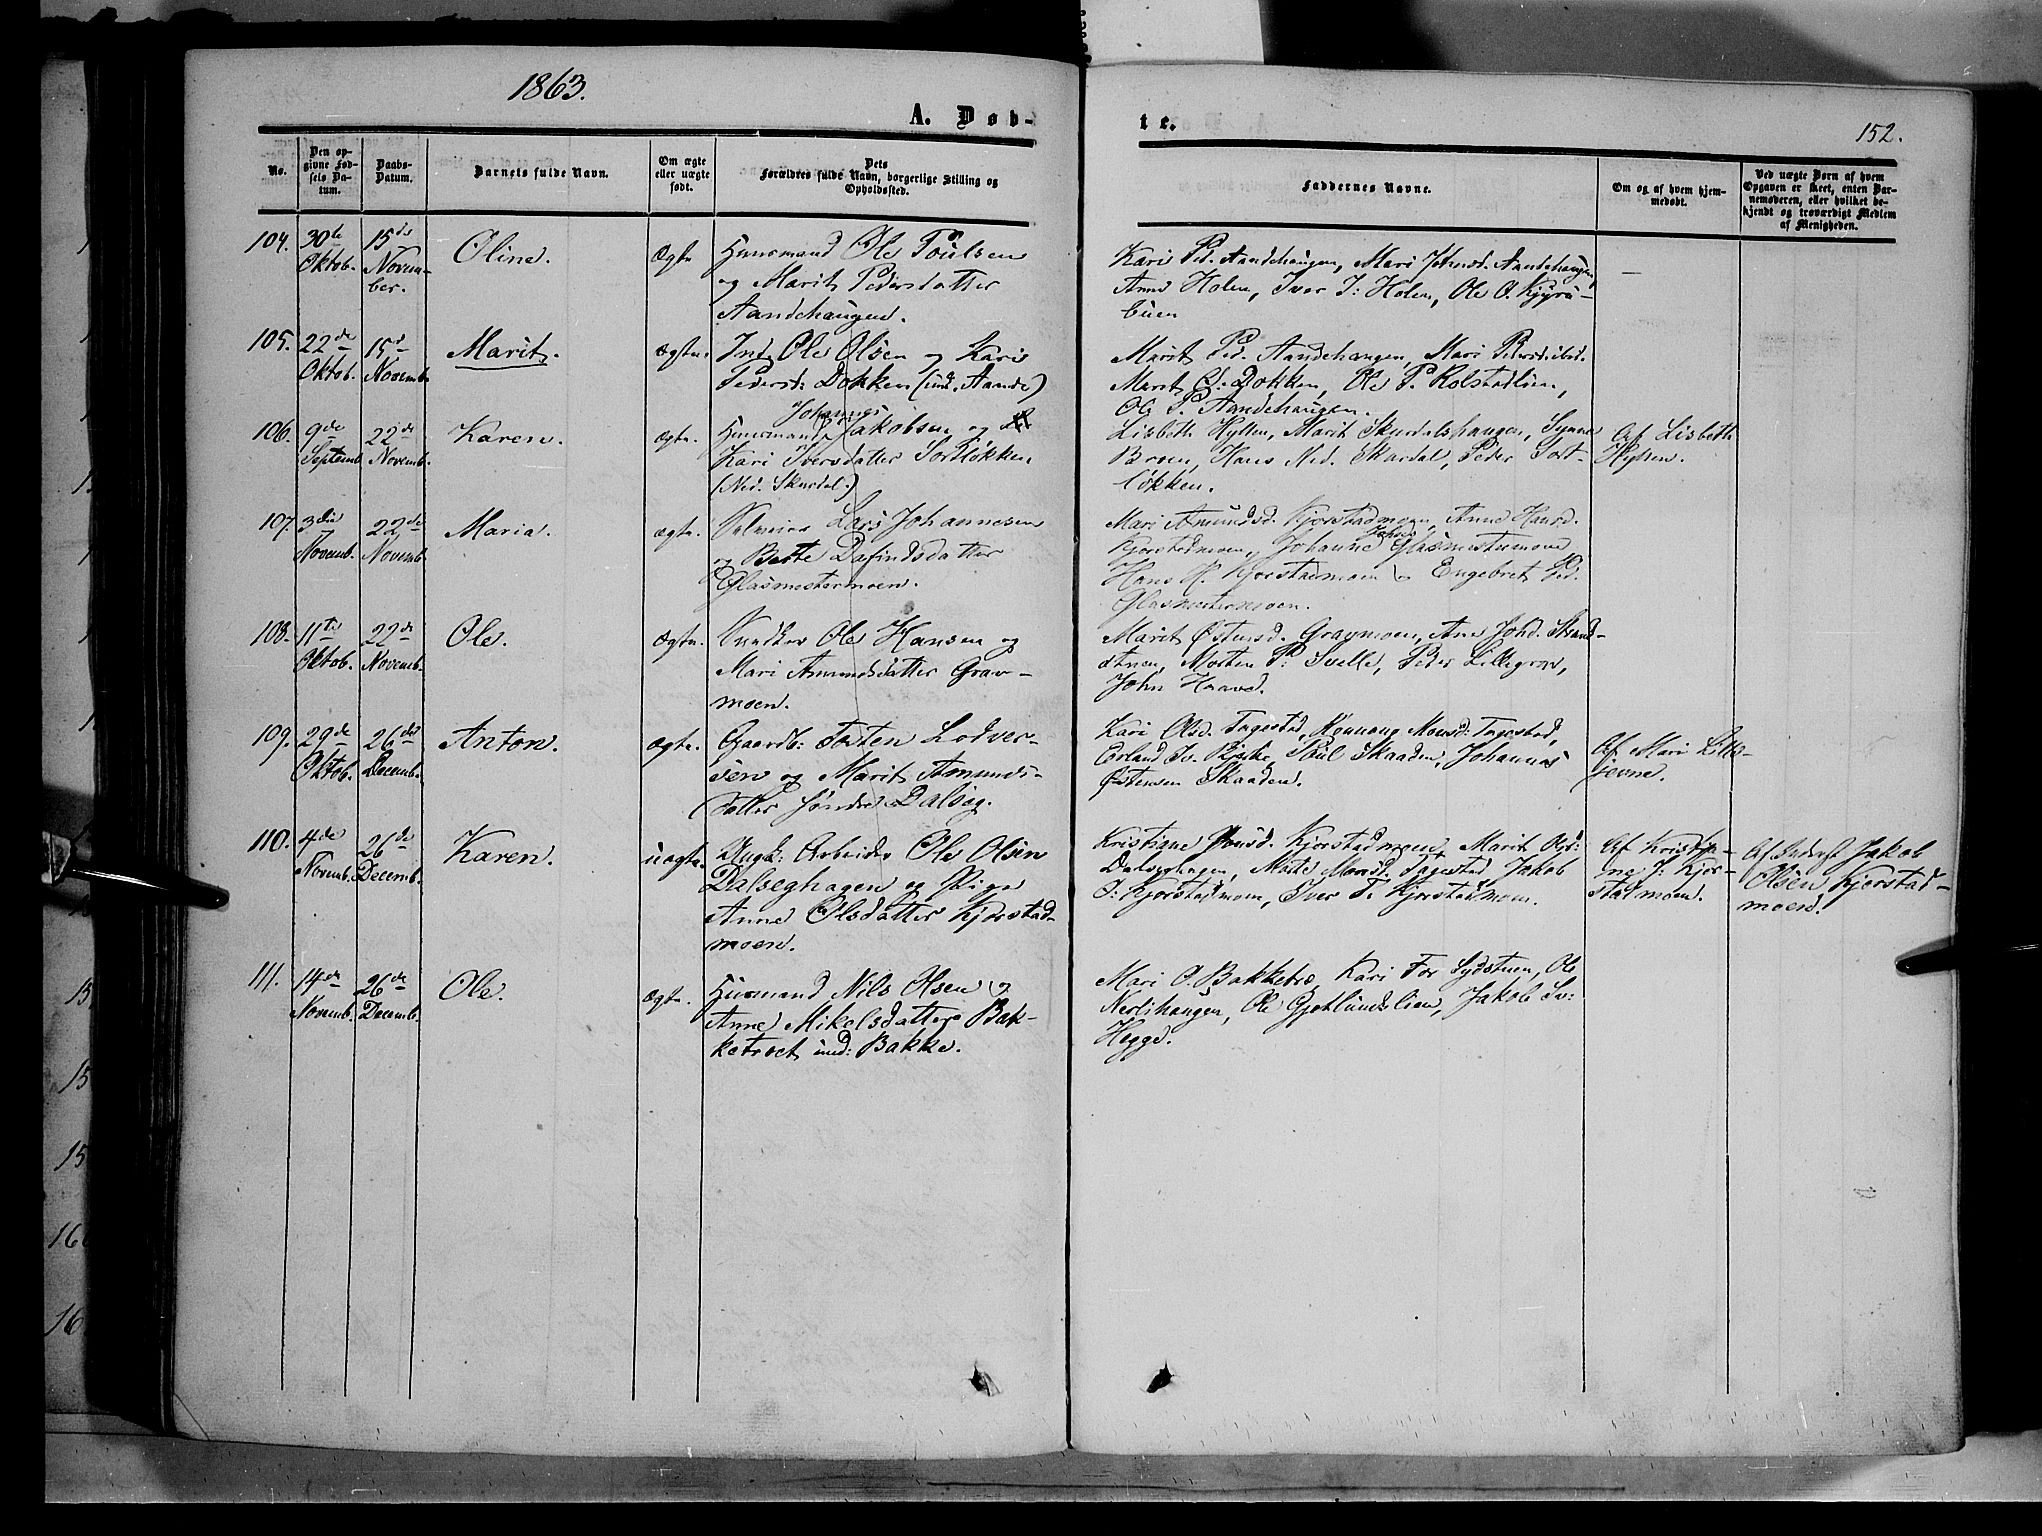 1863.
A. Døb-
te.
152.
No.
Den op-
givne Fød-
sels Da-
tum.
Daabs-
Datum.
Barnets fulde Navn.
Om ægte
eller uægte
født.
Dets
Forældres fulde Navn, borgerlige Stilling og
Opholdssted.
Faddernes Navne.
Om og af hvem hjem-
medøbt.
Ved uægte Børn af hvem
Opgaven er skeet, enten Bar-
nemoderen, eller hvilket be-
kjendt og troværdigt Medlem
af Menigheden.
104.
30te
Oktob.
15de
Novem-
ber.
Oline.
Ægte
Huusmand Ole Poulsen
og Marit Pedersdatter
Aandehaugen.
Kari Ped. Aandehaugen, Mari Johnsd. Aandehaugen,
Anne Holen, Iver I: Holen, Ole O.
buen
105.
22de
Oktob.
15d
Novemb.
Marit.
ægte.
Ind. Ole Olsen og Kari
Pedersd. Dokken (und. Aande)
Marit Ped. Aandehaugen, Mari Pedersd. ibid.
Marit O: Dokken, Ole P. Kolstadlien,
Ole P. Aandehaugen.
106.
9de
Septemb.
22de
Novemb.
Karen.
ægte.
Johannes
Huusmand Jakobsen og
Kari Iversdatter Sortløkken
(Ned. Skurdal.)
Lisbeth Hytten, Marit Skurdalshaugen, Synne
Broen, Hans Ned. Skurdal, Peder Sort-
løkken.
Af Lisbeth
Hytten.
107.
3die
Novemb.
22de
Novemb.
Maria.
ægte.
Selveier Lars Johannesen
og Berte Dafindsdatter
Glasmestermoen.
Mari Amundsd. Kjorstadmoen, Anne Hansd.
Kjorstadmoen, Johanne Glasmestermoen
Hans H. Kjorstadmoen og Engebret Ped.
Glasmestermoen.
108.
11te
Oktob.
22de
Novemb.
Ole.
Ægte.
Snedker Ole Hansen og
Mari Amundsdatter Grav-
moen.
Marit Østensd. Gravmoen, Ane Johd. Strand-
stuen, Morten P: Svelle, Peder Lillegrav,
John Haave.
109.
29de
Oktob.
26de
Decemb.
Anton.
ægte.
Gaardb: Tosten Lodver-
sen og Marit Amunds-
datter søndre Dalseg.
Kari Olsd. Tagestad, Rønnoug Monsd: Tagestad,
Erland Iv. Bjerke, Poul Skaaden, Johannes
Østensen Skaaden.
Af Mari Lille-
jevne.
110.
4de
Novemb.
26de
Decemb.
Karen.
uægte.
Ungk: Arbeider Ole Olsen
Dalseghagen og Pige
Anne Olsdatter Kjorstad-
moen.
Kristiane Jonsd. Kjorstadmoen, Marit Olsd:
Dalseghagen, Mette Monsd. Tagestad, Jakob
O: Kjorstadmoen, Iver T. Kjorstadmoen.
Af Kristia-
ne J: Kjor-
stadmoen.
Af Inderst Jakob
Olsen Kjorstad-
moen.
111.
14de
Novemb.
26de
Decemb.
Ole.
Ægte.
Huusmand Nils Olsen og
Anne Mikelsdatter Bak-
ketroet und: Bakke.
Mari O. Bakketroe, Kari Tor Sydstuen, Ole
Nerlihaugen, Ole Gjetlundslien, Jakob Sv:
Hegge.